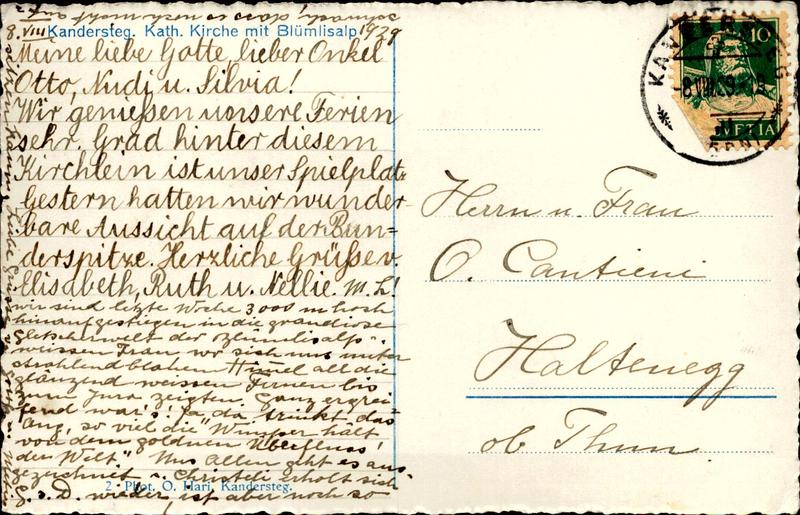 8. VIII 1929
Kandersteg. Kath. Kirche mit Blümlisalp
Meine liebe Gotte, lieber Onkel
Otto, Nudi u. Silvia!
Wir genießen unsere Ferien
sehr. Grad hinter diesem
Kirchlein ist unser Spielplatz
Gestern hatten wir wunder-
bare Aussicht auf der Bun-
derspitze. Herzliche Grüße v.
Elisabeth, Ruth u. Nellie. M. L!
wir sind letzte Woche 3000 m hoch
hinaufgestiegen in die grandiose
Gletscherwelt der Blümlisalp
wo sich uns unter
strahlend blauem Himel all die
glänzend weissen Firnen bis
zum Jura zeigten. Ganz ergrei-
fend war's! Ja, da trinkt das
Aug, so viel die Wimper hält
von dem goldnen Überfluss!
der Welt". Uns Allen geht es aus-
gezeichnet. Christeli erholt sich
G. s. D. wieder, ist aber noch so
2. Phot. O. Hari, Kandersteg.
KANDERSTEG
-8.VIII.29.
10
HELVETIA
Herrn u. Frau
O. Cantieni
Haltenegg
ob Thun